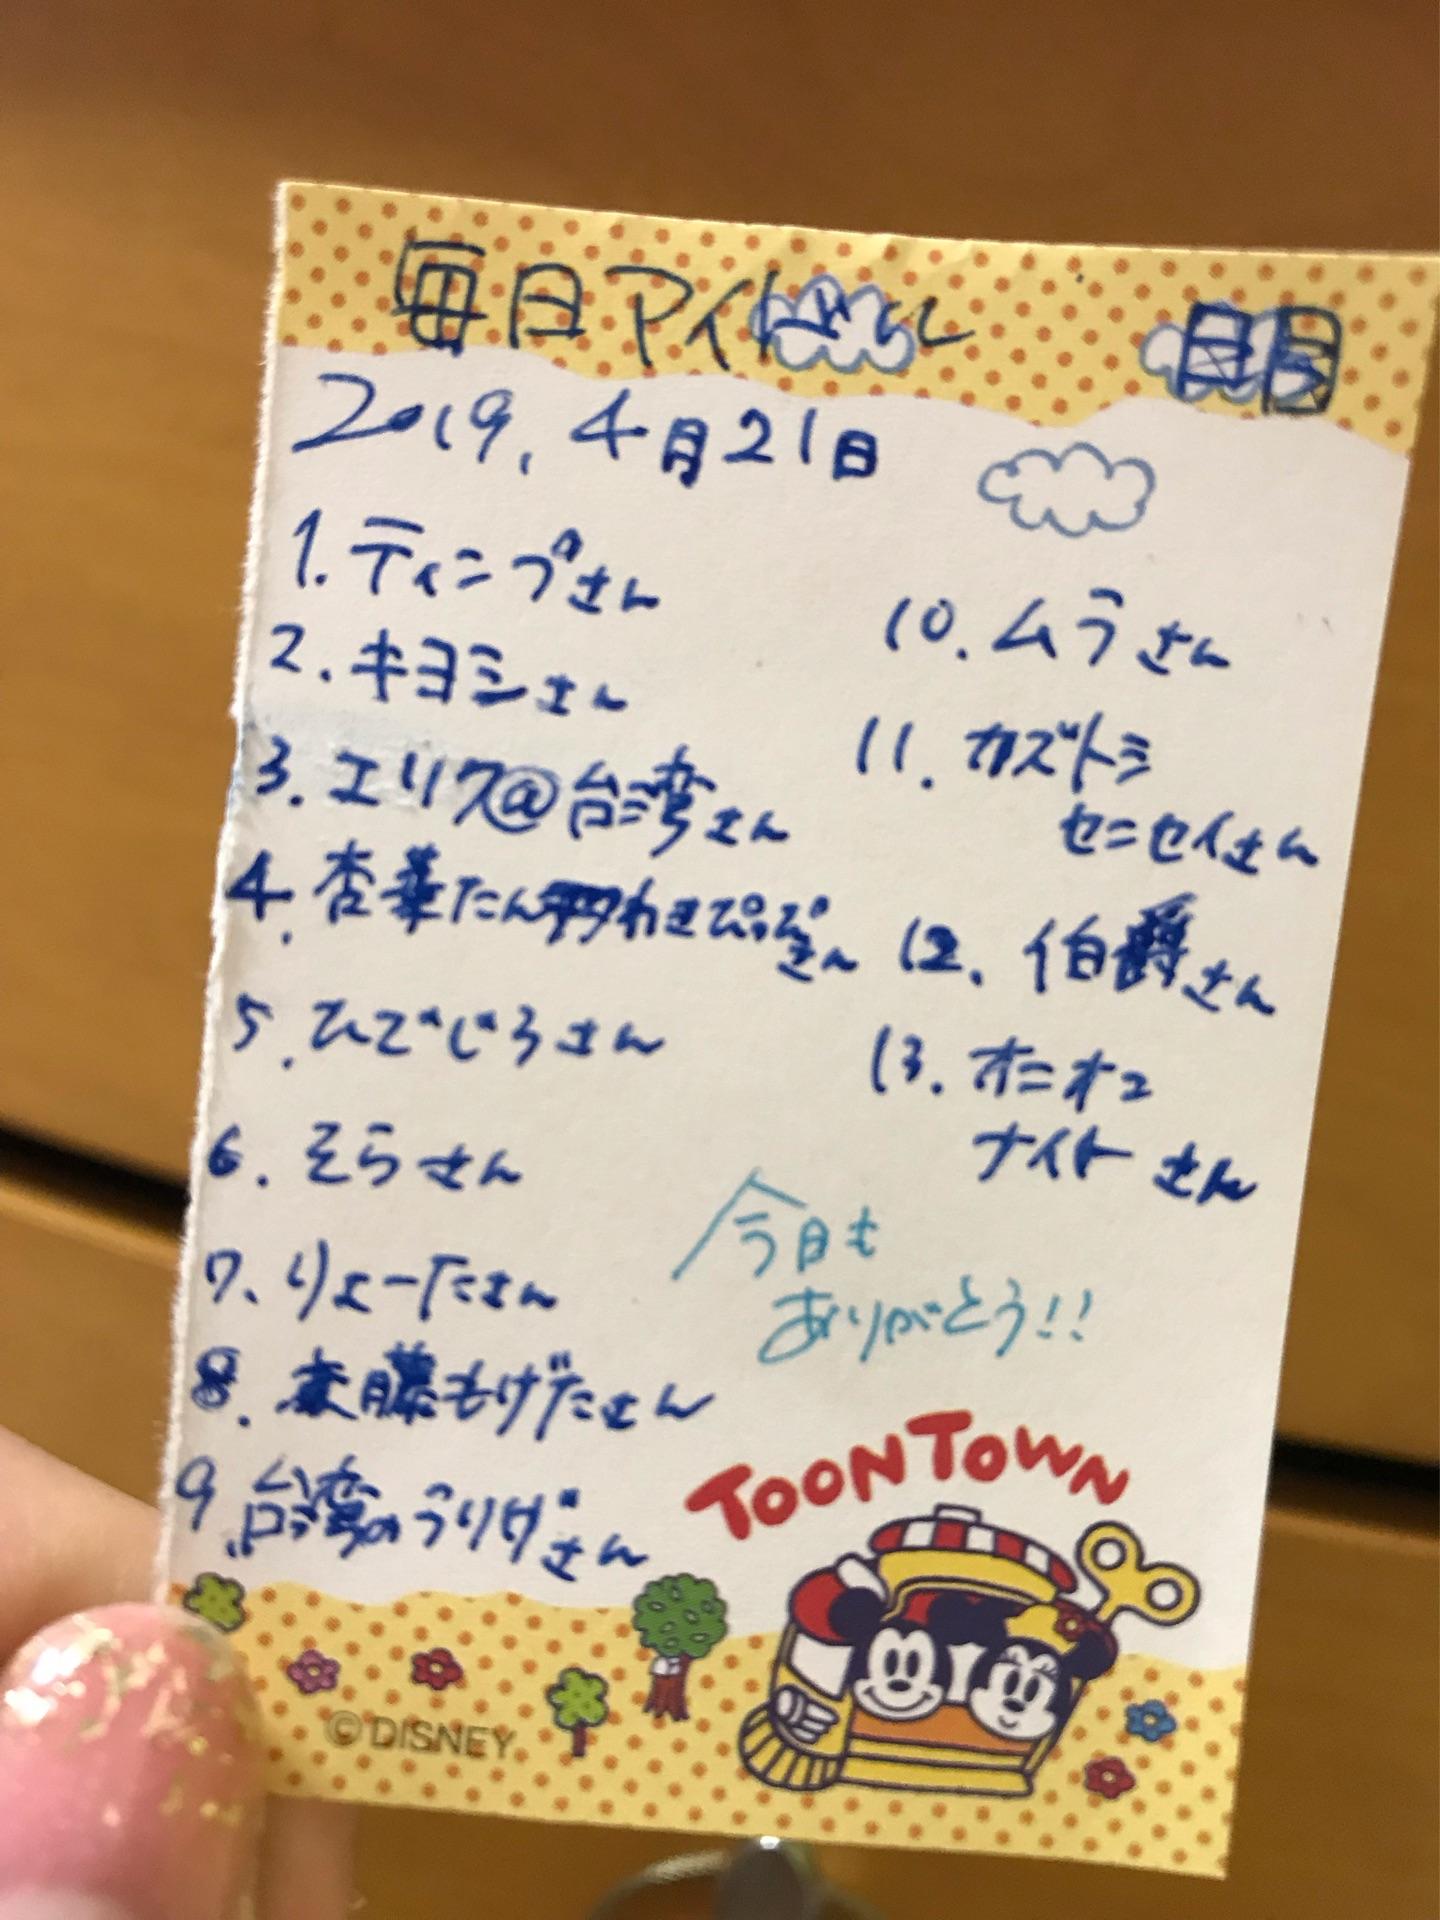 毎日アイ
2019.4月21日
1. ティニプさん
2. キヨシさん
3. エリク@台湾さん
4. 杏華たんわきぴっぴさん
5. ひでじろさん
6. そらさん
7. りょーたさん
8. 藤もげたさん
9. 台湾のうりげさん
10. ムラさん
11. カズトミ
センセイさん
12. 伯爵さん
13. オニオコ
ナイトさん
今日も
ありがとう!!
TOONTOWN
©DISNEY